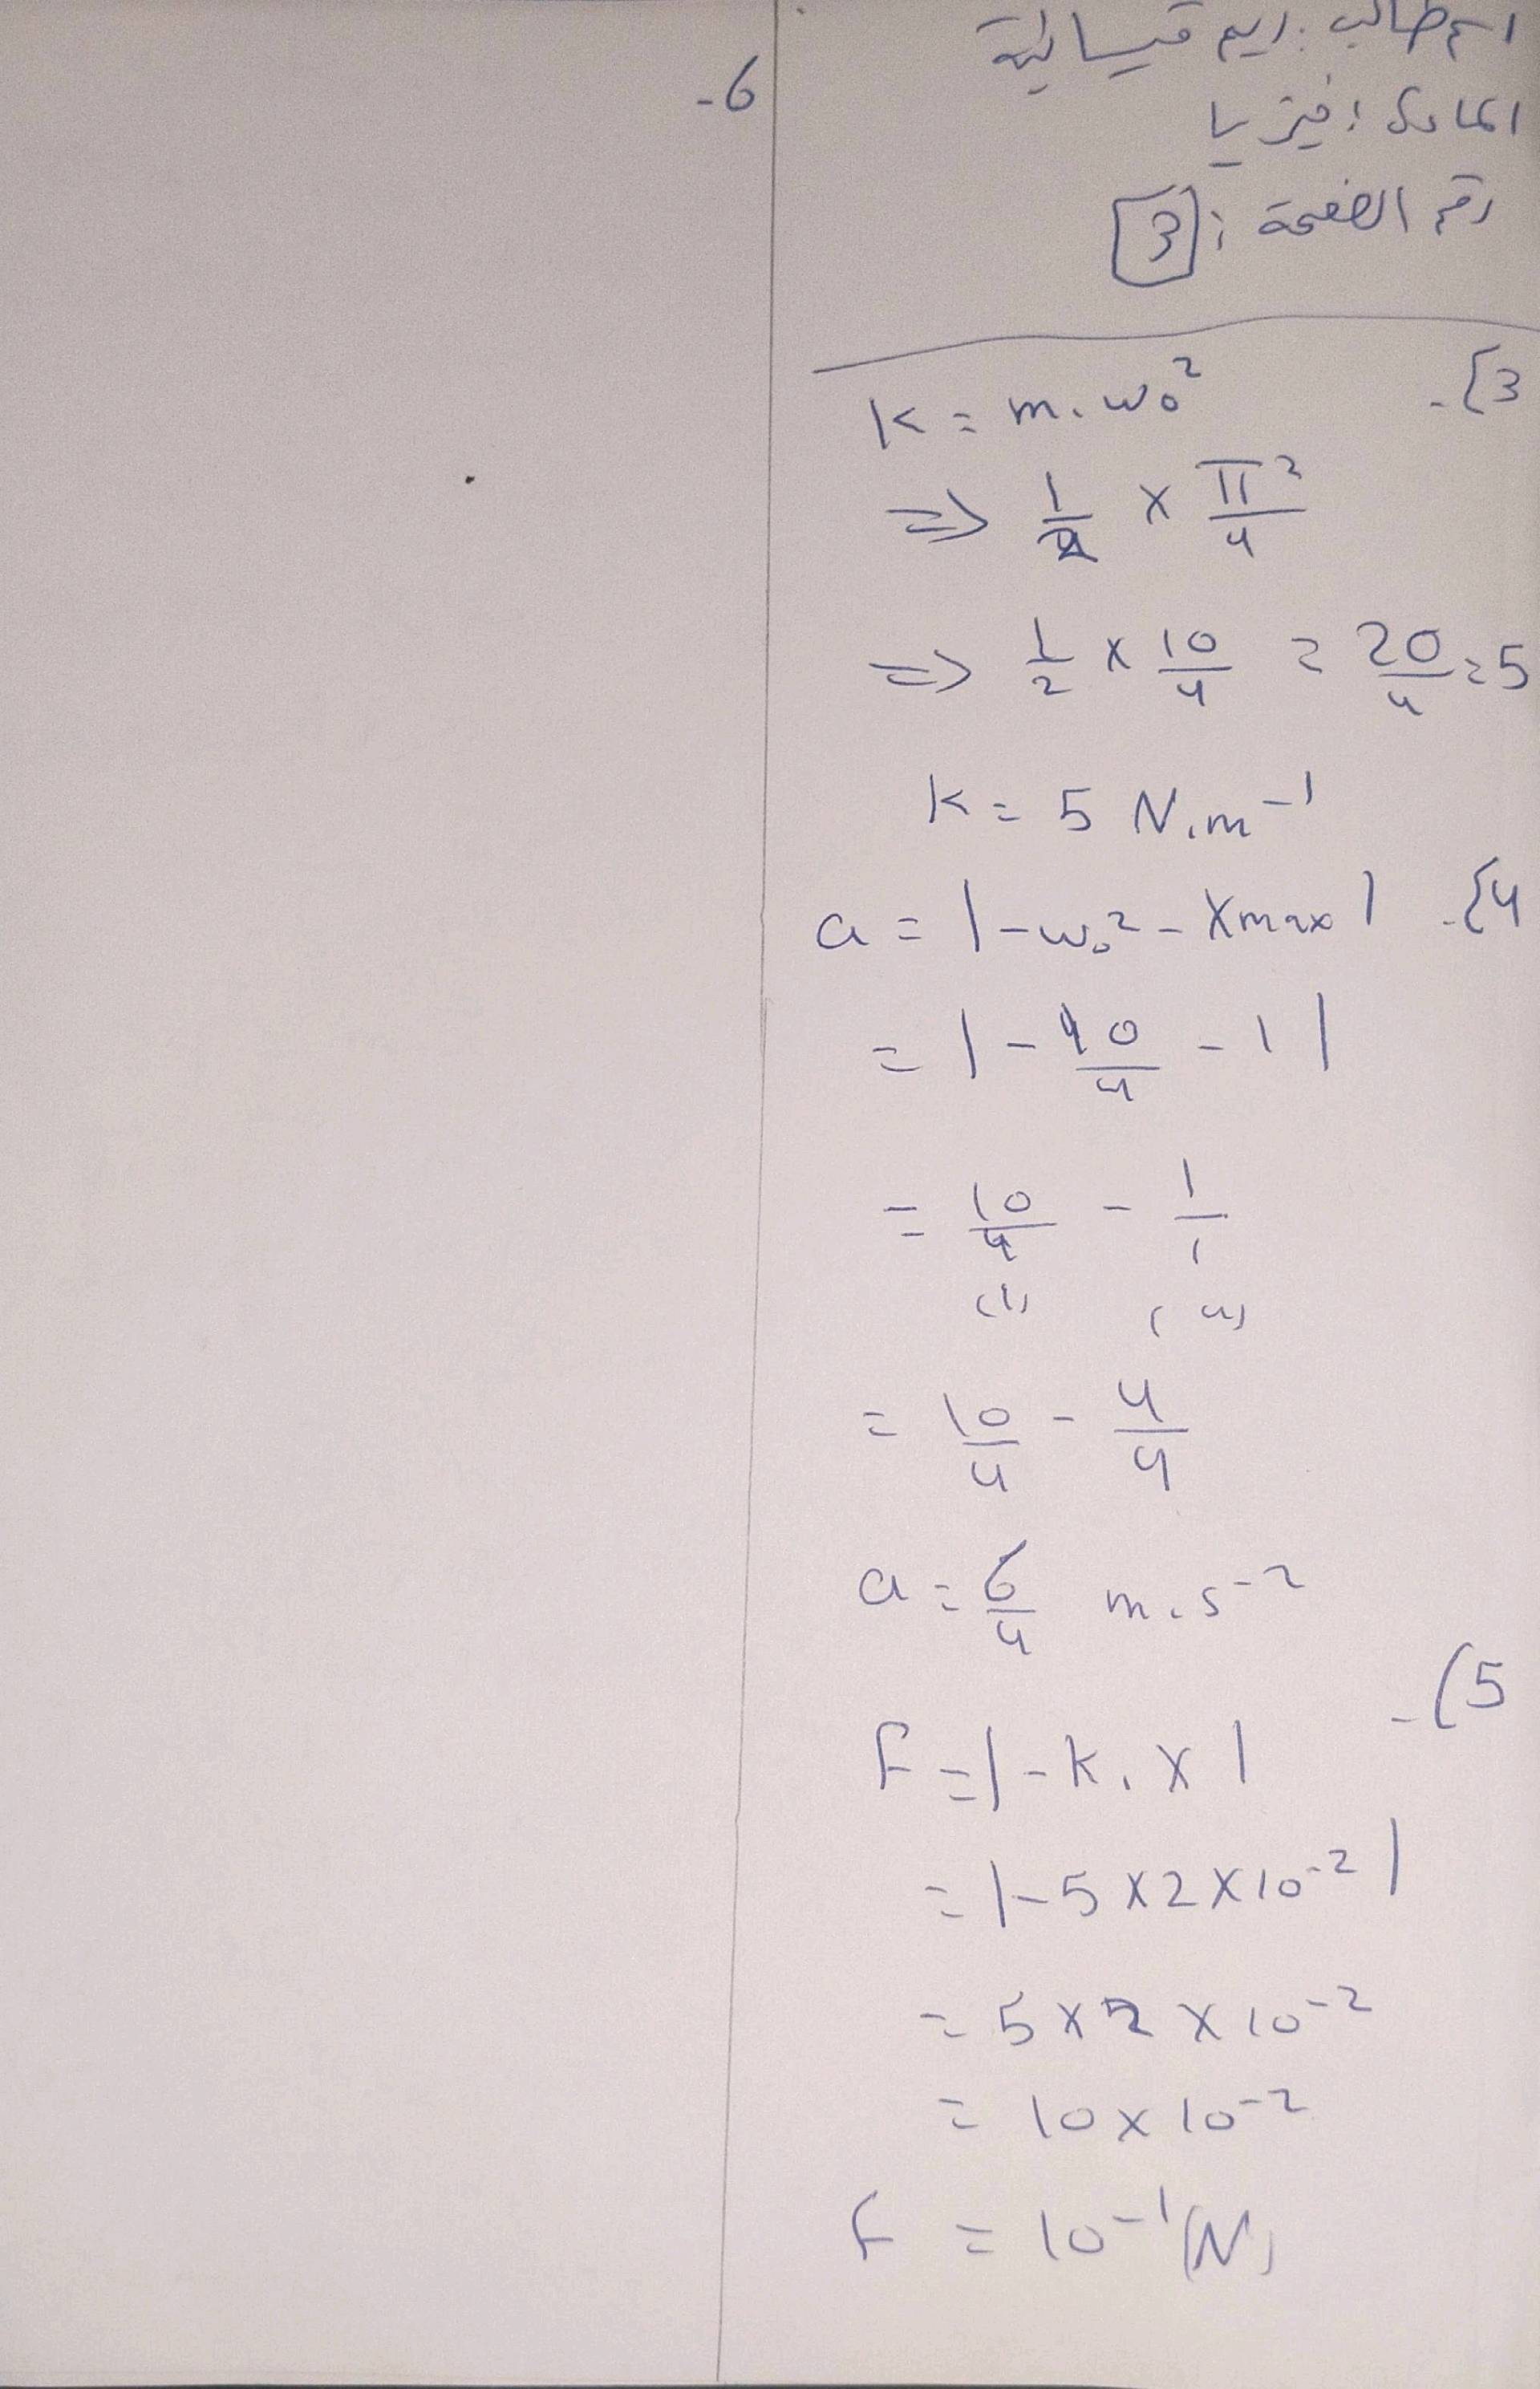 اسم طالب: ريم قيسانية
المادة: فيزيا
رقم الصفحة: 3
3}-
K = m. w₀²
=> 1/2 × π²/4
=> 1/2 × 10/4 = 20/4 = 5
K = 5 N.m⁻¹
4}- a = |-w₀² - Xmax|
= |-10/4 - 1|
= 10/4 - 1/1
(1) (4)
= 10/4 - 4/4
a = 6/4 m.s⁻²
5)-
F = |-k. x|
= |-5 × 2 × 10⁻²|
= 5 × 2 × 10⁻²
= 10 × 10⁻²
F = 10⁻¹ (N)
6-